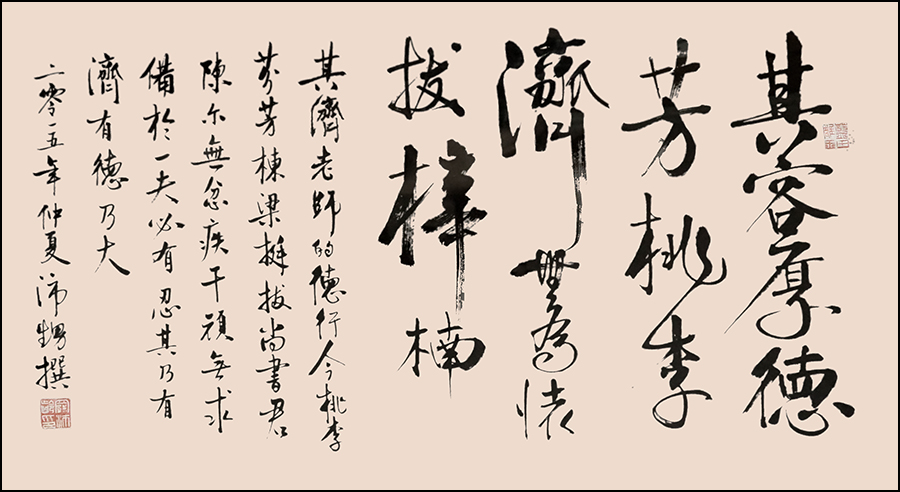 其容厚德
芳桃李
濟世為懷
拔樟楠
其濟老師的德行令桃李
芬芳棟梁挺拔尚書君
陳尔無忿疾于頑無求
備於一夫必有忍其乃有
濟有德乃大
二零一五年仲夏沛甥撰